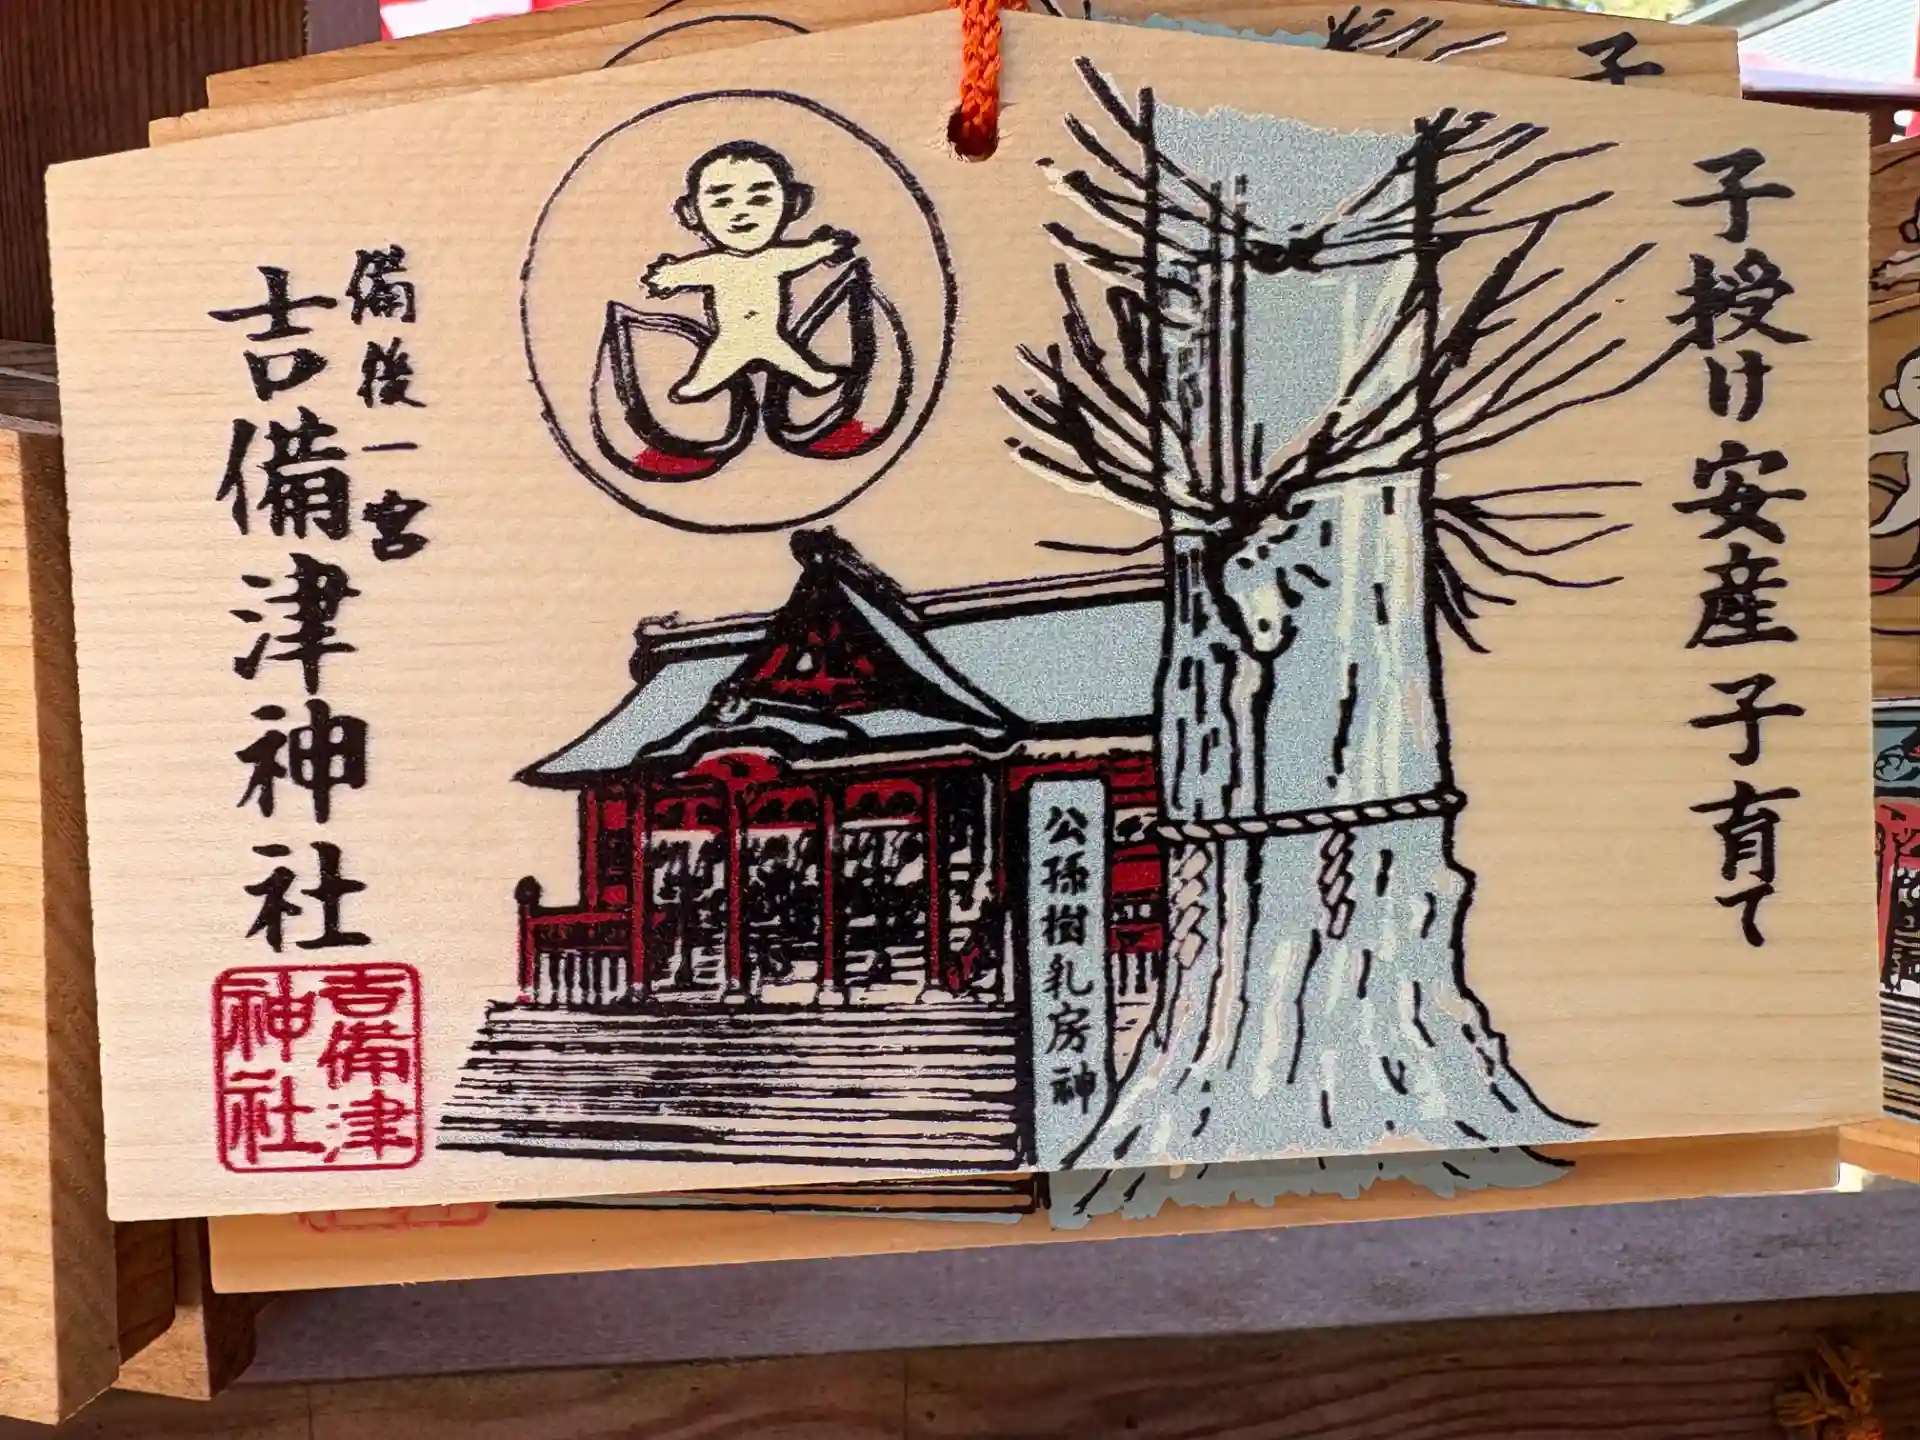 子授け安産子育て
公孫樹乳房神
備後一宮
吉備津神社
吉備津
神社
子